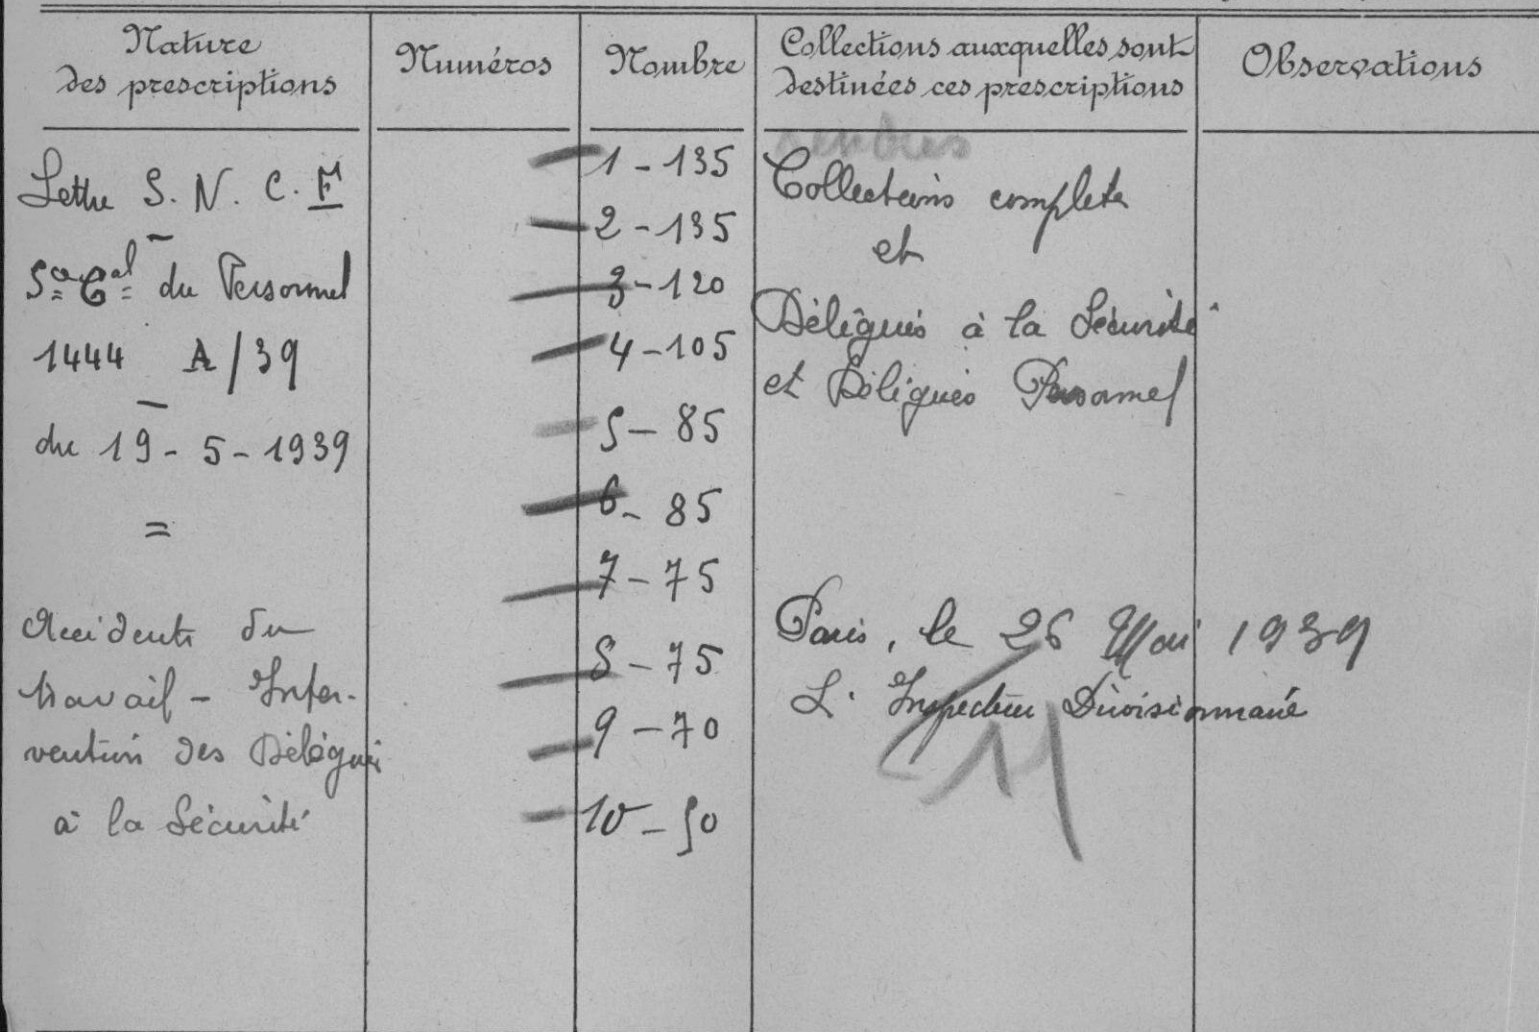 Nature
des prescriptions
Numéros
Nombre
Collections auxquelles sont
destinées ces prescriptions
Observations
Lettre S. N. C. F
Sce Gal du Personnel
1444 A/39
du 19-5-1939
=
Accidents du
travail - Inter-
vention des Délégués
à la Sécurité
1-135
2-135
3-120
4-105
5-85
6-85
7-75
8-75
9-70
10-50
Collections complètes
et
Délégués à la Sécurité
et Délégués Personnel
Paris, le 26 Mai 1939
L'Inspecteur Divisionnaire